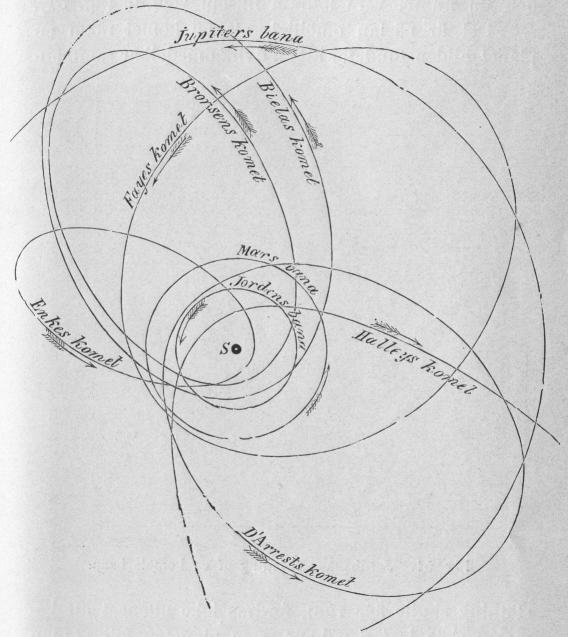 Jupiters bana
Bronsens komet
Bielas komet
Fayes komet
Mars bana
Jordens bana
Enkes komet
S
Halleys komet
D'Arrests komet